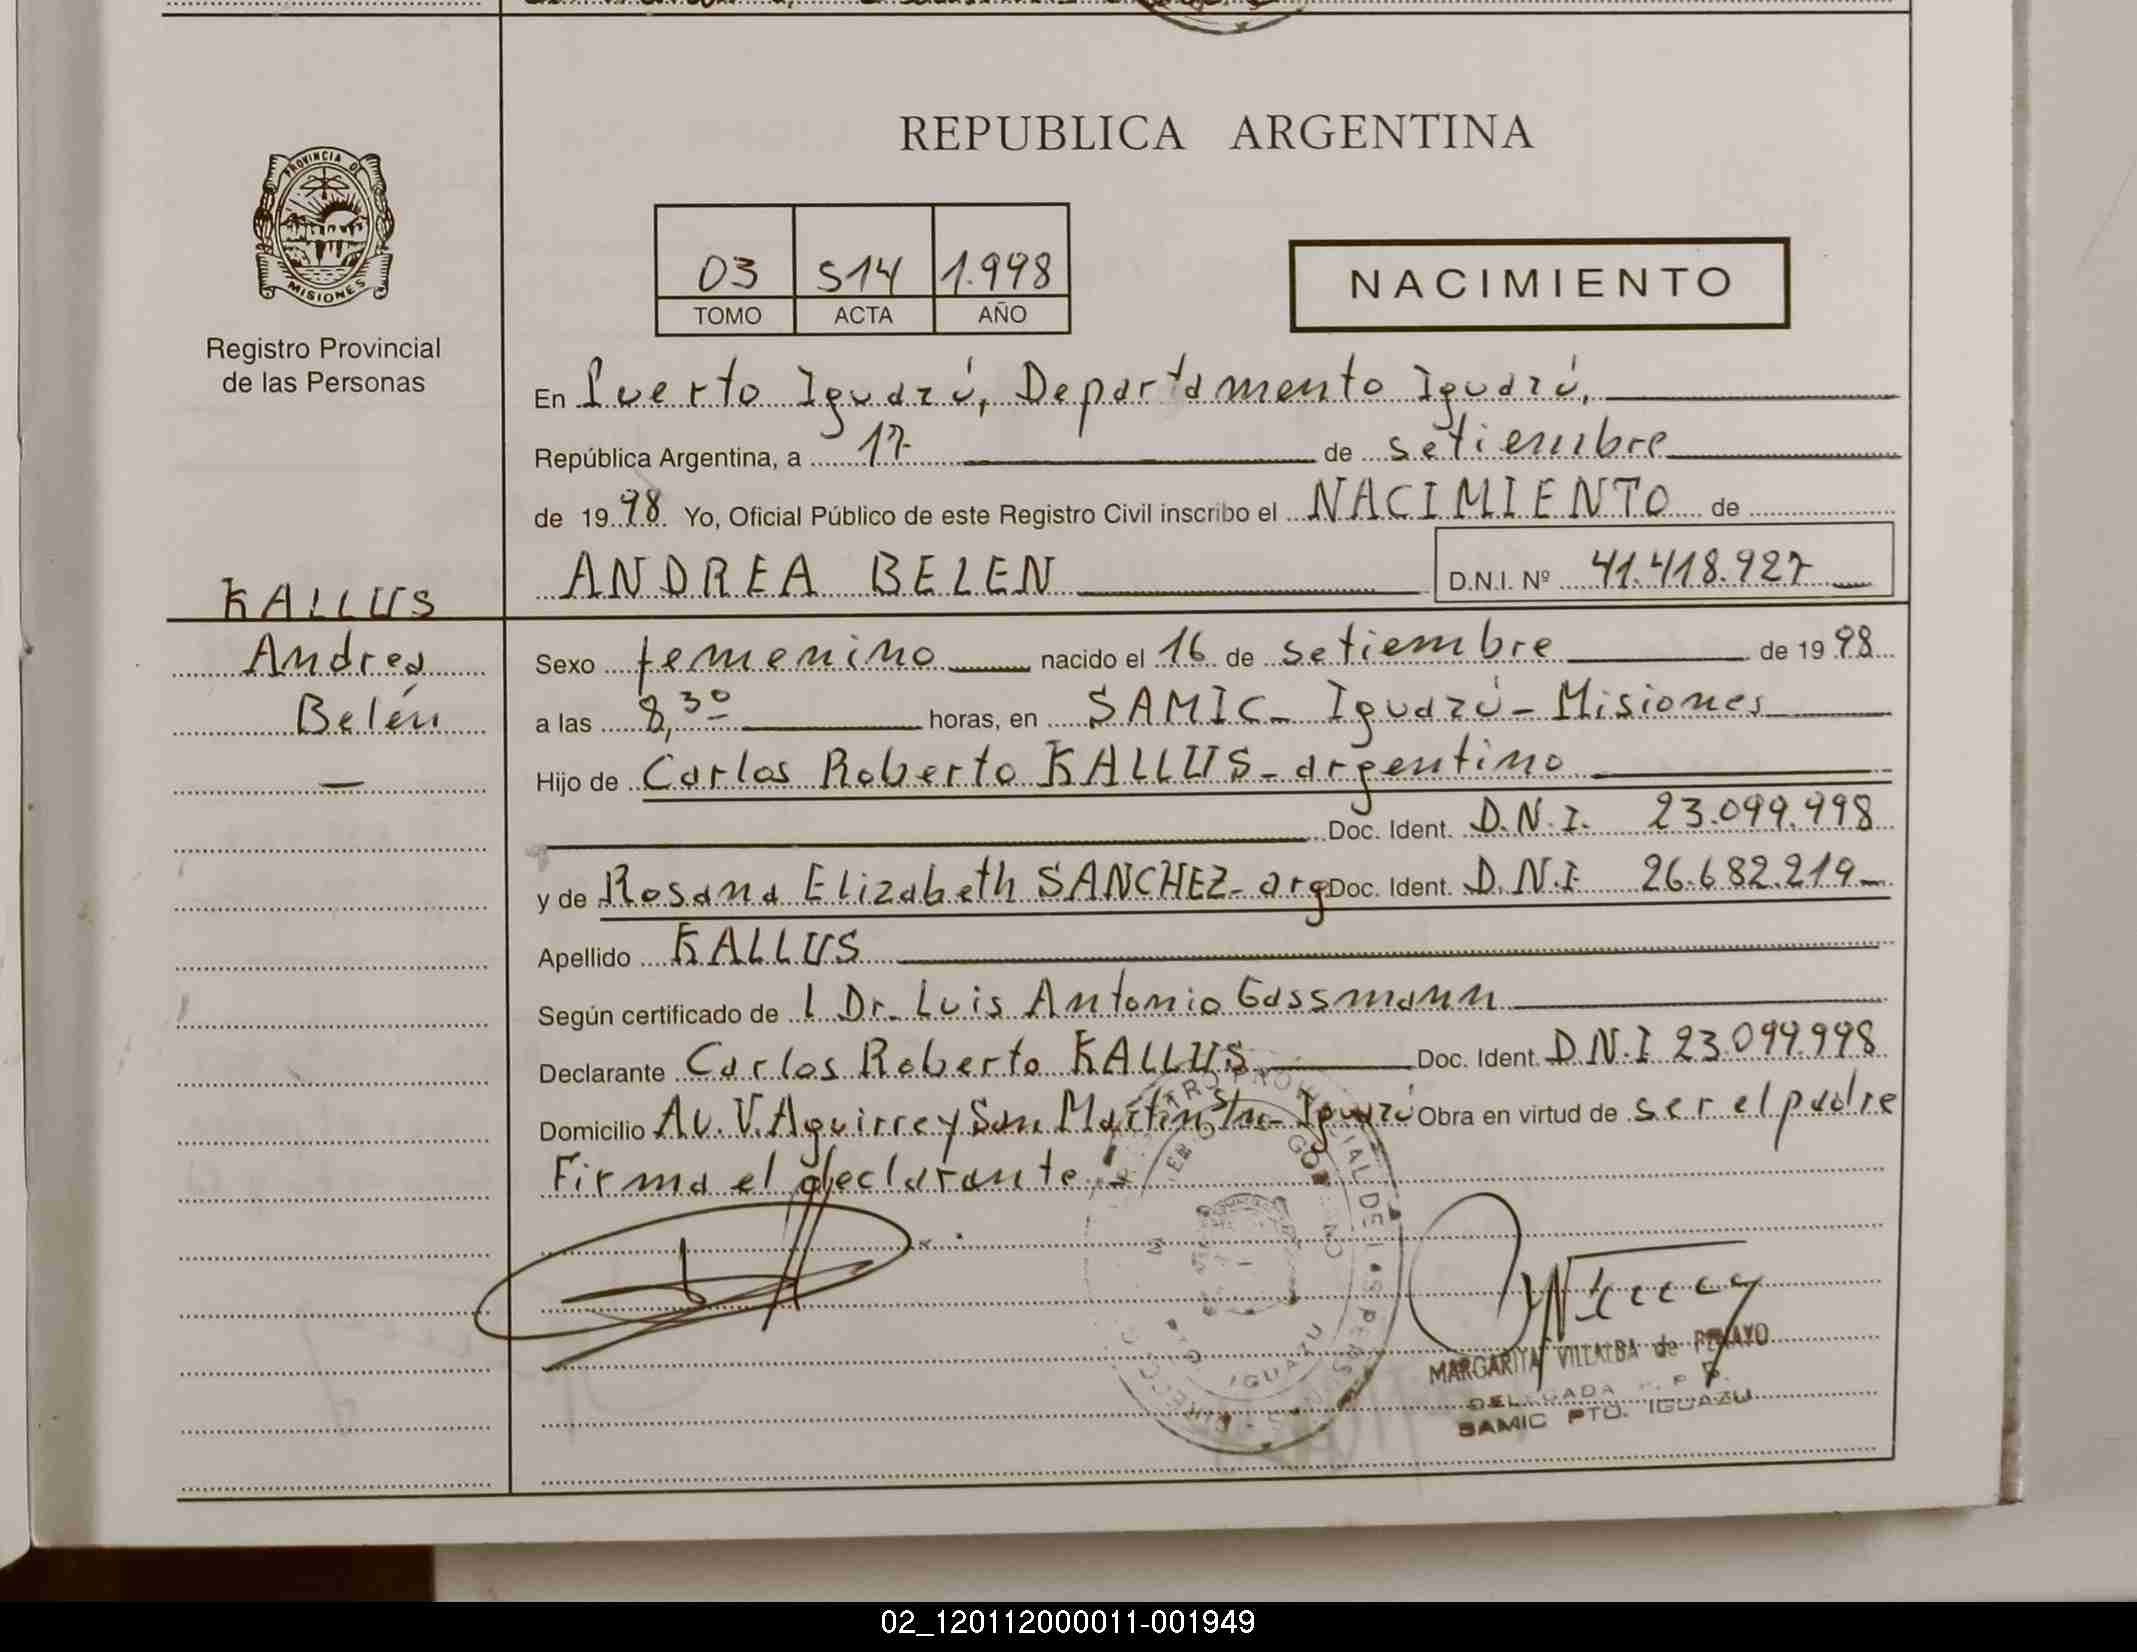 REPUBLICA ARGENTINA
PROVINCIA DE
MISIONES
Registro Provincial
de las Personas
03 514 1.998
TOMO ACTA AÑO
NACIMIENTO
En Puerto Iguazú, Departamento Iguazú,
República Argentina, a 17 de setiembre
de 1998 Yo, Oficial Público de este Registro Civil inscribo el NACIMIENTO de
ANDREA BELEN D.N.I. Nº 41.418.927
KALLUS
Andrea
Belén
Sexo femenino nacido el 16 de setiembre de 1998
a las 8,30 horas, en SAMIC - Iguazú - Misiones
Hijo de Carlos Roberto KALLUS - argentino
Doc. Ident. D.N.I. 23.099.998
y de Rosana Elizabeth SANCHEZ - arg Doc. Ident. D.N.I 26.682.219
Apellido KALLUS
Según certificado de l Dr. Luis Antonio Gassmann
Declarante Carlos Roberto KALLUS Doc. Ident. D.N.I 23.099.998
Domicilio Av. V. Aguirre y San Martin - Iguazú Obra en virtud de ser el padre
Firma el declarante
IGUAZU
MARGARITA VILLALBA de
SAMIC PTO. IGUAZU
02_120112000011-001949